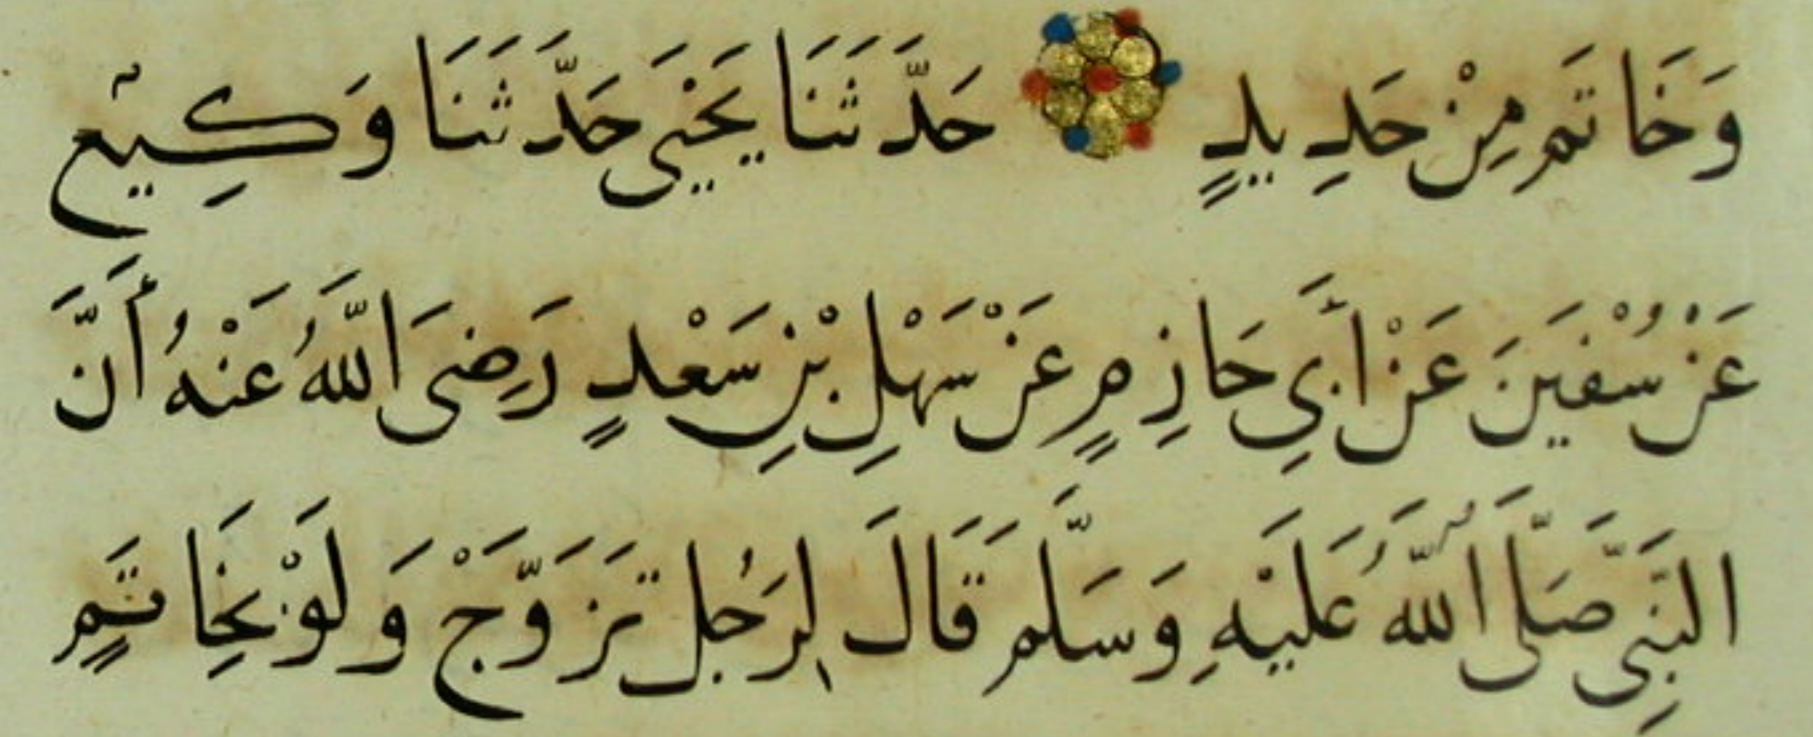 وَخَاتَمٍ مِنْ حَدِيدٍ حَدَّثَنَا يَحْيَى حَدَّثَنَا وَكِيع
عَنْ سُفْيَنَ عَنْ أَبِي حَازِمٍ عَنْ سَهْلِ بْنِ سَعْدٍ رَضِىَ اللَّهُ عَنْهُ أَنَّ
النَّبِىَّ صَلَّى اللَّهُ عَلَيْهِ وَسَلَّمَ قَالَ لِرَجُلٍ تَزَوَّجْ وَلَوْ بِخَاتَمٍ